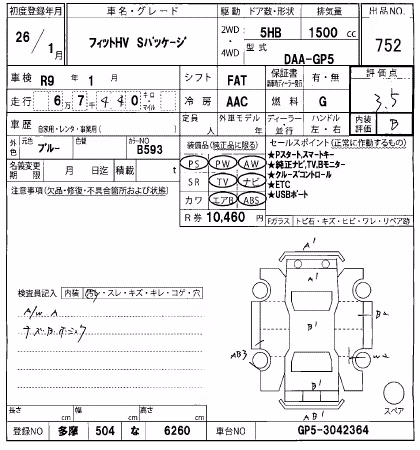 初度登録年月 車名・グレード 駆動 ドア数・形状 排気量 出品NO.
26/1月 フィットHV Sパッケージ 2WD・4WD 5HB 1500 cc 752
型式 DAA-GP5
車検 R9年1月 シフト FAT 保証書 有・無 評価点
走行 6万7千440 キロ・マイル 冷房 AAC 燃料 G 3.5
車歴 自家用・レンタ・事業用( ) 定員 人 外車モデル 年 ディーラー・並行 ハンドル 左・右 内装評価 B
外色 元色 ブルー 色替 カラーNO B593 装備品(純正品に限る) セールスポイント(正常に作動するもの)
名義変更期限 月 日 積載 t
PS PW AW
SR TV ナビ
カワ エアB ABS
R券 10,460 円
★Pスタートスマートキー
★純正ナビ,TV,Bモニター
★クルーズコントロール
★ETC
★USBポート
注意事項(欠品・修復・不具合箇所および状態)
Fガラス トビ石・キズ・ヒビ・ワレ・リペア跡
検査員記入 内装 ・スレ・キズ・キレ・コゲ・穴
A/W A
A1
B1
A1
B1
B2
AB3
W2
A1
AB1
スペア
長さ cm 幅 cm 高さ cm
登録NO 多摩 504 な 6260 車台NO GP5-3042364